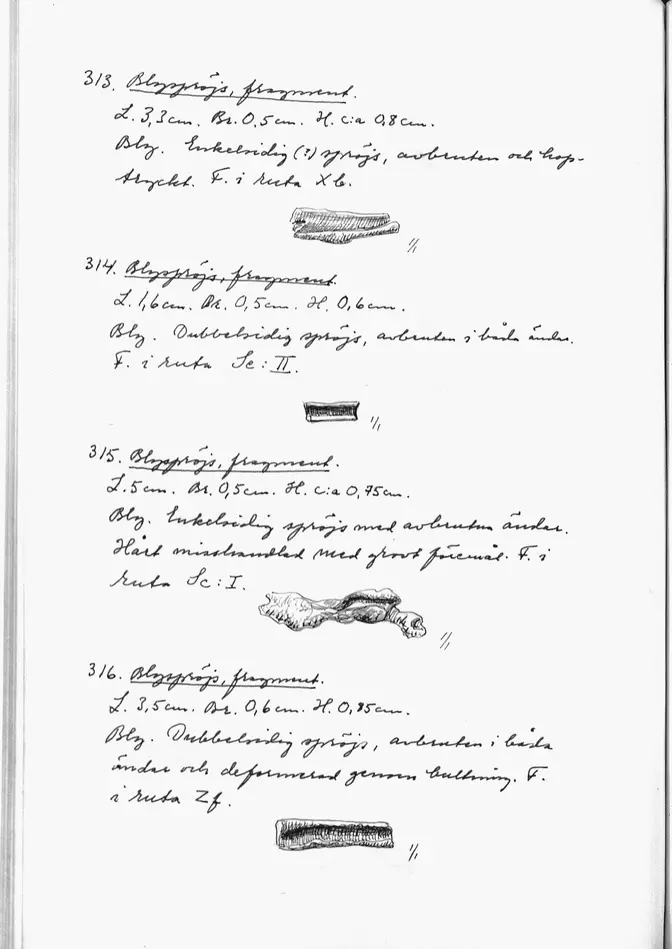 313. Blyspröjs, fragment.
L. 3,3 cm. Br. 0,5 cm. H. c:a 0,8 cm.
Bly. Enkelsidig (?) spröjs, avbruten och hop-
tryckt. F. i ruta Xb.
1/1
314. Blyspröjs, fragment.
L. 1,6 cm. Br. 0,5 cm. H. 0,6 cm.
Bly. Dubbelsidig spröjs, avbruten i båda ändar.
F. i ruta Sc: II.
1/1
315. Blyspröjs, fragment.
L. 5 cm. Br. 0,5 cm. H. c:a 0,75 cm.
Bly. Enkelsidig spröjs med avbrutna ändar.
Hårt misshandlad med grovt föremål. F. i
ruta Sc: I.
1/1
316. Blyspröjs, fragment.
L. 3,5 cm. Br. 0,6 cm. H. 0,85 cm.
Bly. Dubbelsidig spröjs, avbruten i båda
ändar och deformerad genom bultning. F.
i ruta Zf.
1/1